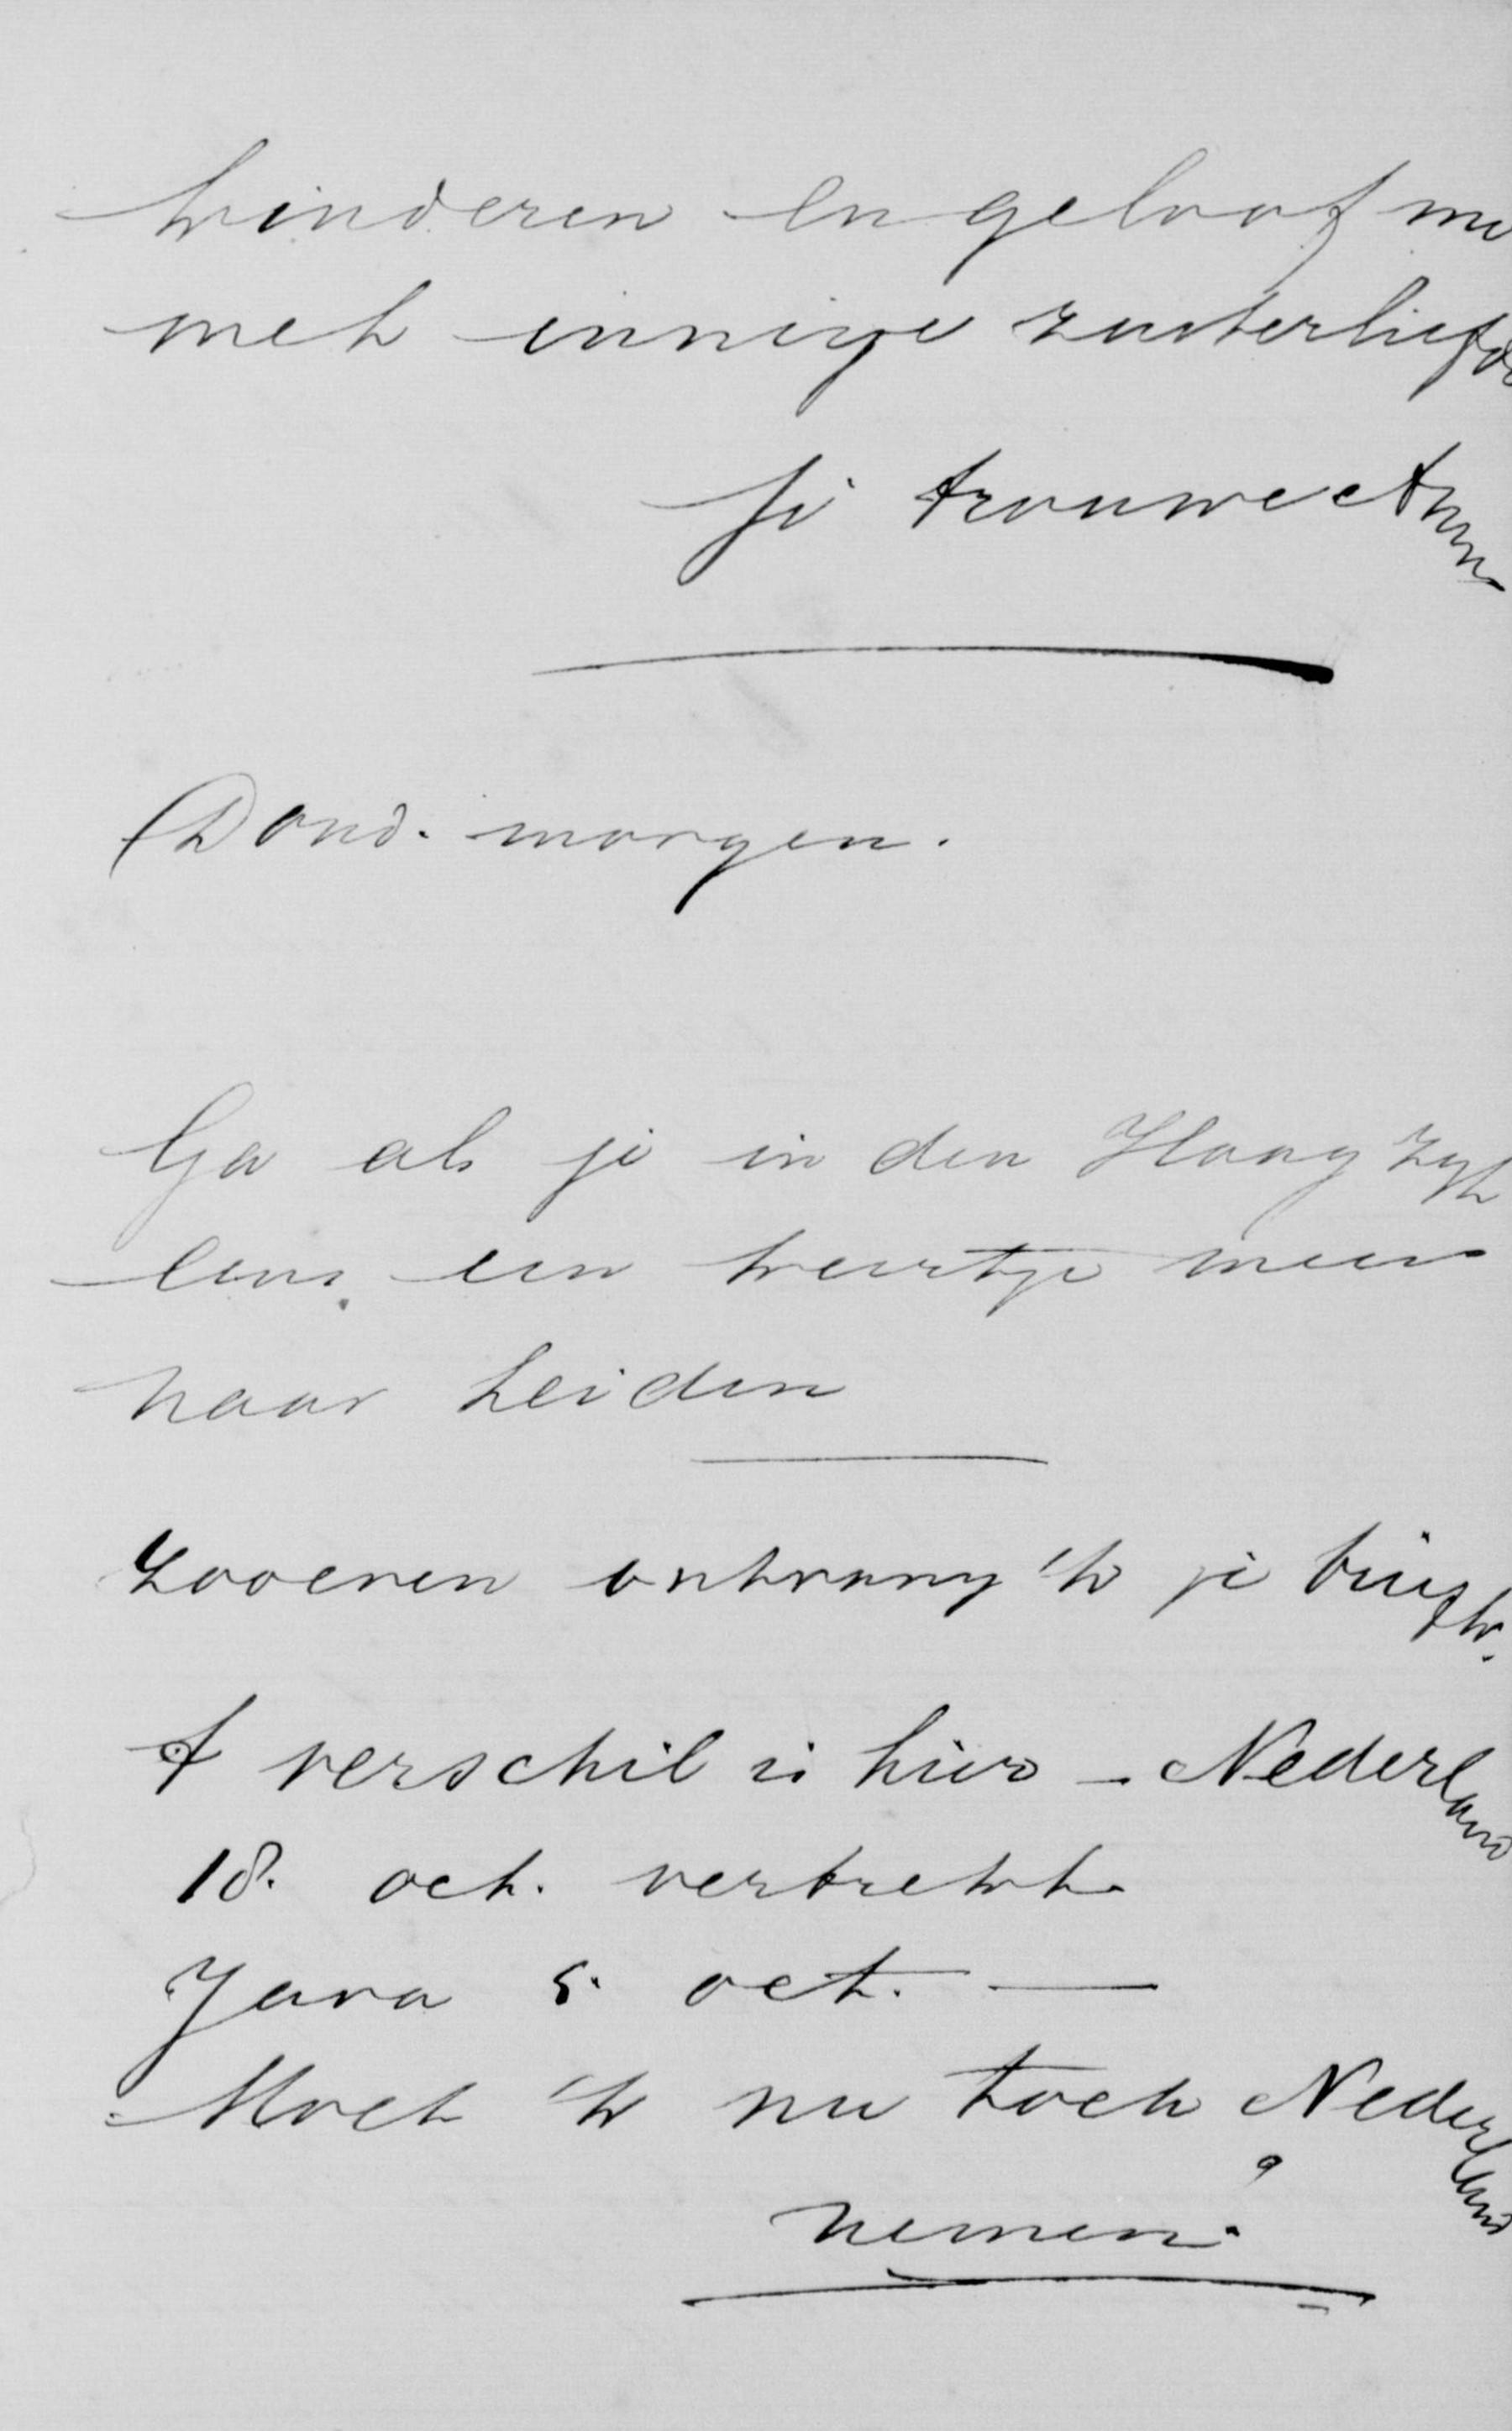 kinderen en geloof me
met innige zusterliefde
je trouwe
Dond. morgen.
Ga als je in den Haag zyt
eens een keertje meer
naar Leiden
Zooeven ontvang 'k je brief
't verschil is hier - Nederland
18. oct. vertrekt
Java 5. oct. —
Moet 'k nu toch Nederland
nemen?